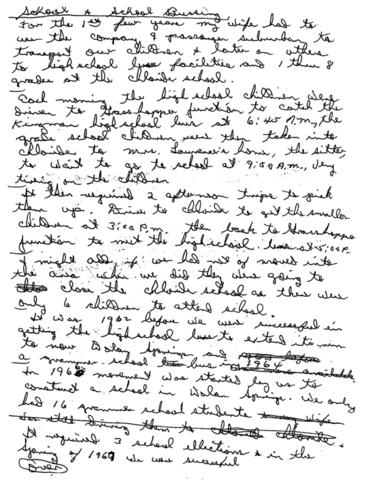 School & School Bussing
For the 1st few years my wife had to
use the company 9 passenger suburban to
transport our children & later on others
to high school bus facilities and 1 thru 8
grades at the Chloride school.
Each morning the high school children were
driven to Grasshopper Junction to catch the
Kingman high school bus at 6:45 A.M., the
grade school children were then taken into
Chloride to Mrs. Lawrence's home, the sitter,
to wait to go to school at 9:00 A.M., Very
tiring on the children
It then required 2 afternoon trips to pick
them up. Drive to Chloride to get the smaller
children at 3:00 P.M. then back to Grasshopper
Junction to meet the high school bus at 5:00 P.
I might add if we had not of moved into
the area when we did they were going to
close the Chloride school as there were
only 6 children to attend school.
It was 1962 before we were successful in
getting the high school bus to extend its run
to now Dolan Springs and
a grammer school bus in 1964 available.
In 1966 movement was started by us to
construct a school in Dolan Springs. We only
had 16 grammer school students my wife
was still driving them to Chloride.
It required 3 school ellections & in the
Spring of 1967 we were successful
Over